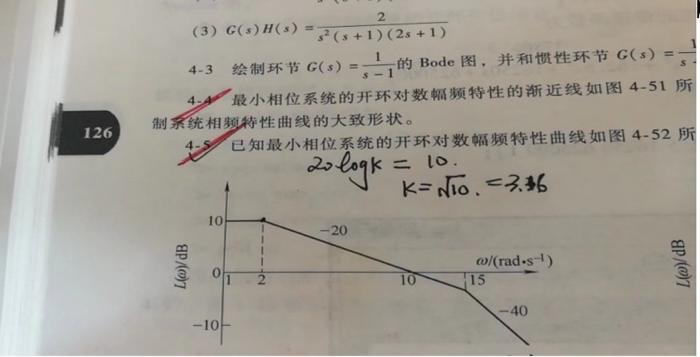 (3) G(s)H(s) = 2 / s²(s+1)(2s+1)
4-3 绘制环节 G(s) = 1/(s-1) 的 Bode 图，并和惯性环节 G(s) =
4-4 最小相位系统的开环对数幅频特性的渐近线如图 4-51 所
制系统相频特性曲线的大致形状。
126
4-5 已知最小相位系统的开环对数幅频特性曲线如图 4-52 所
20logK = 10.
K=√10. =3.16
10
-20
ω/(rad·s⁻¹)
L(ω)/dB
L(ω)/dB
0
1
2
10
15
-40
-10